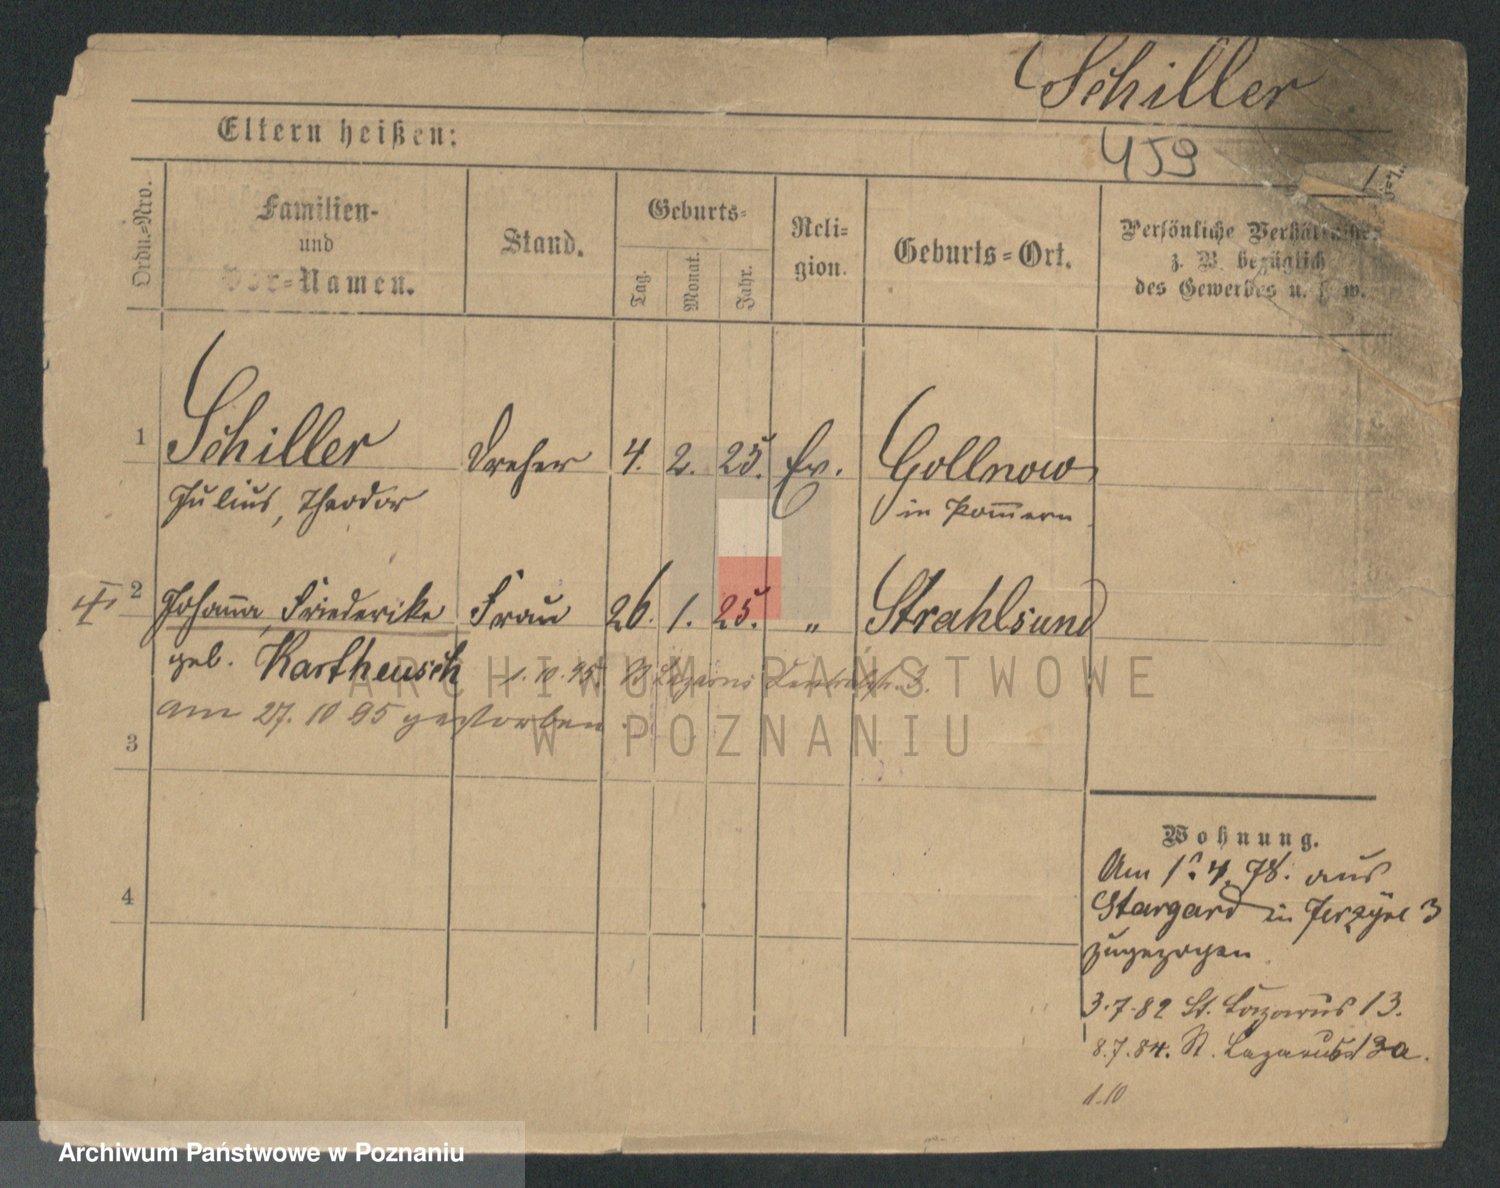 Schiller
Eltern heißen:
459
Ordn.-Nro.
Familien-
und
Vor-Namen.
Stand.
Geburts-
Tag.
Monat.
Jahr.
Reli-
gion.
Geburts-Ort.
Persönliche Verhältnisse
z. B. bezüglich
des Gewerbes u. s. w.
1 Schiller Dreher 4. 2. 25. Ev. Gollnow
Julius, Theodor in Pom̄ern
2 Johan̄a, Friederike Frau 26. 1. 25. " Strahlsund
geb. Kartheusch 1. 10. 95. St Lazarus
am 27. 10 95 gestorben.
3
4
Wohnung.
Am 1. 4. 78. aus
Stargard in Jerzyce 3
zugezogen
3.7.82 St. Lazarus 13.
8.7.84. St. Lazarus 13a.
1.10
ARCHIWUM PAŃSTWOWE
W POZNANIU
Archiwum Państwowe w Poznaniu